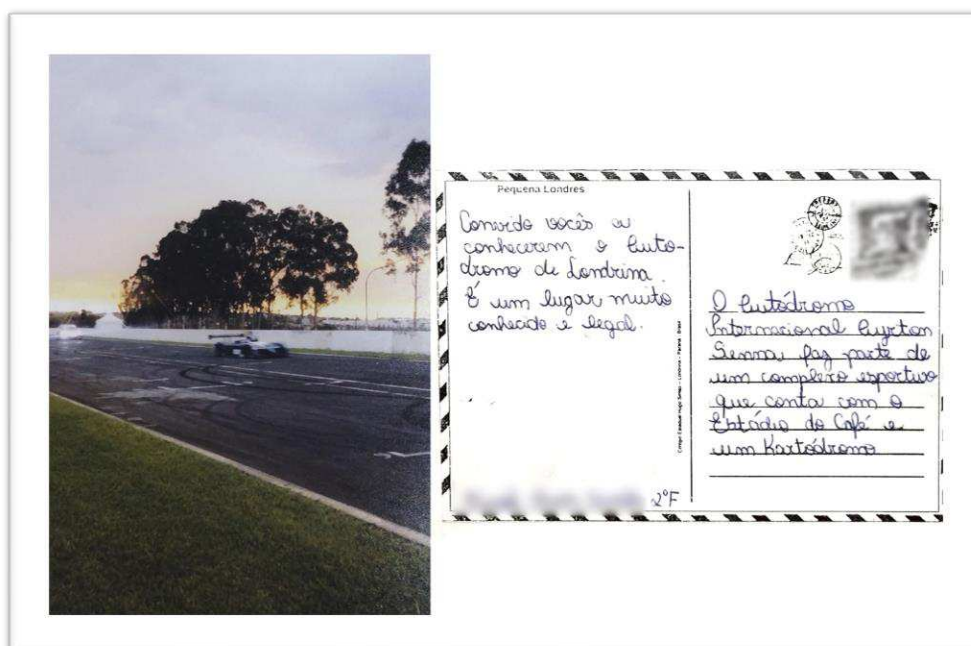 Pequena Londres
Convido vocês a
conhecerem o Auto-
dromo de Londrina.
É um lugar muito
conhecido e legal.
2ºF
O Autódromo
Internacional Ayrton
Senna, faz parte de
um complexo esportivo
que conta com o
Estádio do Café e
um Kartódromo